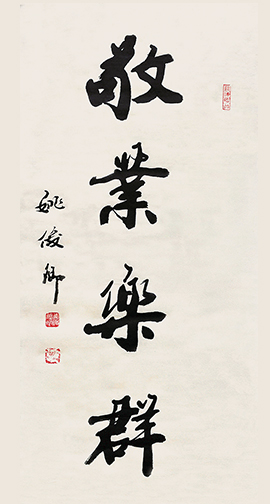 敬業樂群
姚俊卿